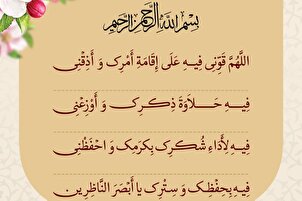 بسم الله الرحمن الرحیم
اللَّهُمَّ قَوِّنِی فِیهِ عَلَى إِقَامَةِ أَمْرِکَ وَ أَذِقْنِی
فِیهِ حَلَاوَةَ ذِکْرِکَ وَ أَوْزِعْنِی
فِیهِ لِأَدَاءِ شُکْرِکَ بِکَرَمِکَ وَ احْفَظْنِی
فِیهِ بِحِفْظِکَ وَ سِتْرِکَ یَا أَبْصَرَ النَّاظِرِینَ